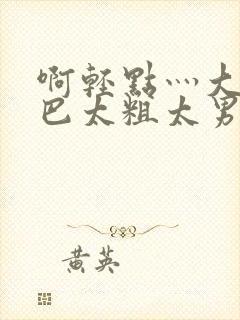 啊輕點灬大
巴太粗太男
黄英